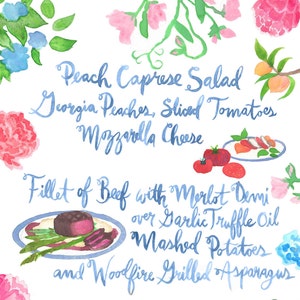 Peach Caprese Salad
Georgia Peaches, Sliced Tomatoes
Mozzarella Cheese
Fillet of Beef with Merlot Demi
over Garlic Truffle Oil
Mashed Potatoes
and Woodfire Grilled Asparagus